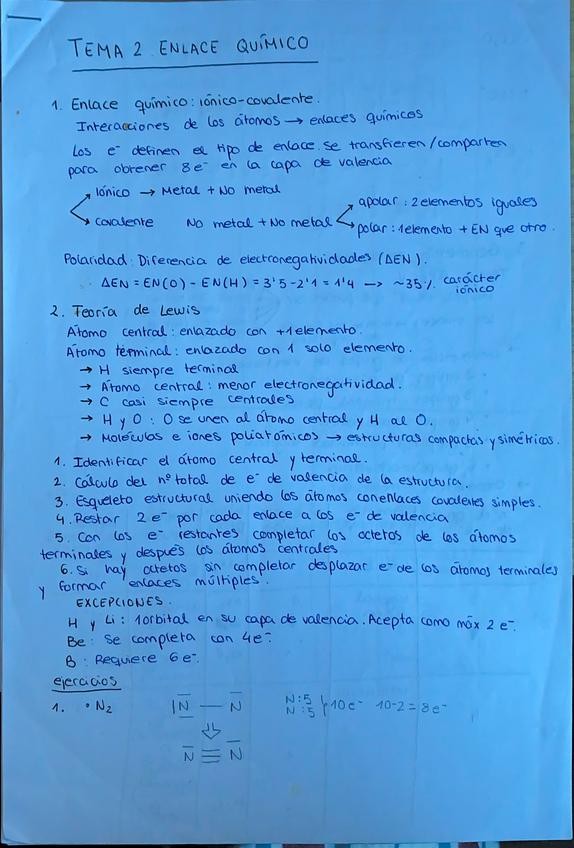 TEMA 2. ENLACE QUÍMICO
1. Enlace químico: iónico-covalente.
Interacciones de los átomos → enlaces químicos
Los e⁻ definen el tipo de enlace. Se transfieren/comparten
para obtener 8e⁻ en la capa de valencia
iónico → Metal + No metal
covalente No metal + No metal
apolar: 2 elementos iguales
polar: 1 elemento + EN que otro.
Polaridad: Diferencia de electronegatividades (ΔEN).
ΔEN = EN(O) - EN(H) = 3'5 - 2'1 = 1'4 → ~35% carácter iónico
2. Teoría de Lewis
Átomo central: enlazado con +1 elemento.
Átomo terminal: enlazado con 1 solo elemento.
→ H siempre terminal
→ Átomo central: menor electronegatividad.
→ C casi siempre centrales
→ H y O: O se unen al átomo central y H al O.
→ Moléculas e iones poliatómicos → estructuras compactas y simétricas.
1. Identificar el átomo central y terminal.
2. Cálculo del nº total de e⁻ de valencia de la estructura.
3. Esqueleto estructural uniendo los átomos con enlaces covalentes simples.
4. Restar 2e⁻ por cada enlace a los e⁻ de valencia
5. Con los e⁻ restantes completar los octetos de los átomos
terminales y después los átomos centrales
6. Si hay octetos sin completar desplazar e⁻ de los átomos terminales
y formar enlaces múltiples.
EXCEPCIONES.
H y Li: 1 orbital en su capa de valencia. Acepta como máx 2 e⁻.
Be: Se completa con 4e⁻.
B: Requiere 6e⁻.
ejercicios
1. • N₂ |N — N N:5 N:5 } 10e⁻ 10-2 = 8e⁻
N ≡ N